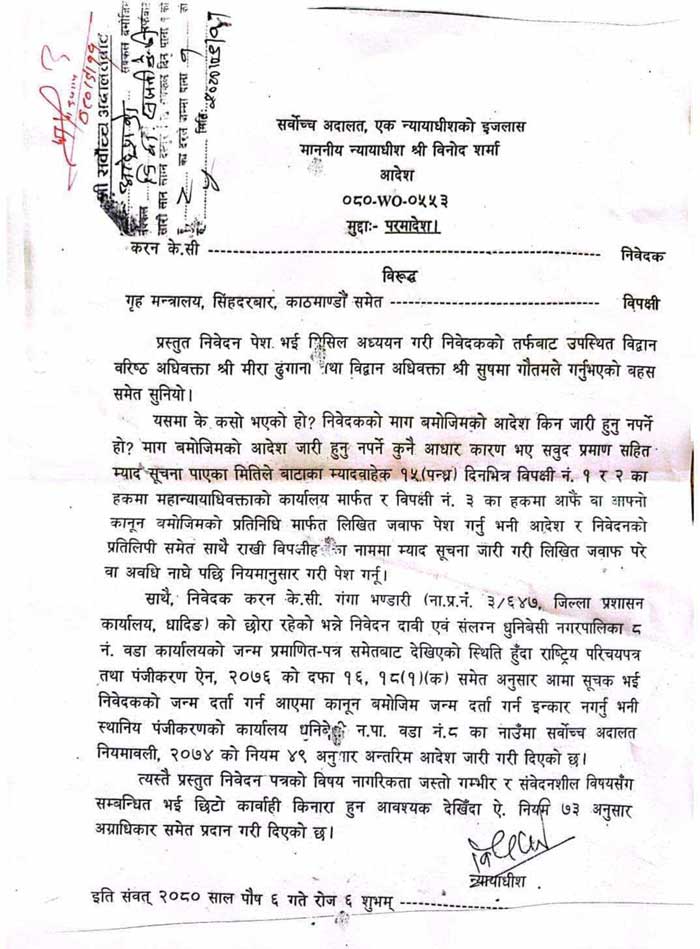 श्री सर्वोच्च अदालतबाट
सर्वोच्च अदालत, एक न्यायाधीशको इजलास
माननीय न्यायाधीश श्री विनोद शर्मा
आदेश
०८०-WO-०५५३
मुद्दाः- परमादेश।
करन के.सी ------------------------------------------------------------ निवेदक
विरूद्ध
गृह मन्त्रालय, सिंहदरबार, काठमाण्डौं समेत -------------------------------- विपक्षी
प्रस्तुत निवेदन पेश भई मिसिल अध्ययन गरी निवेदकको तर्फबाट उपस्थित विद्वान
वरिष्ठ अधिवक्ता श्री मीरा ढुंगाना तथा विद्वान अधिवक्ता श्री सुषमा गौतमले गर्नुभएको बहस
समेत सुनियो।
यसमा के कसो भएको हो? निवेदकको माग बमोजिमको आदेश किन जारी हुनु नपर्ने
हो? माग बमोजिमको आदेश जारी हुनु नपर्ने कुनै आधार कारण भए सवुद प्रमाण सहित
म्याद सूचना पाएका मितिले बाटाका म्यादवाहेक १५(पन्ध्र) दिनभित्र विपक्षी नं. १ र २ का
हकमा महान्यायाधिवक्ताको कार्यालय मार्फत र विपक्षी नं. ३ का हकमा आफैं वा आफ्नो
कानून बमोजिमको प्रतिनिधि मार्फत लिखित जवाफ पेश गर्नु भनी आदेश र निवेदनको
प्रतिलिपी समेत साथै राखी विपक्षीहरूका नाममा म्याद सूचना जारी गरी लिखित जवाफ परे
वा अवधि नाघे पछि नियमानुसार गरी पेश गर्नू।
साथै, निवेदक करन के.सी. गंगा भण्डारी (ना.प्र.नं. ३/६४७, जिल्ला प्रशासन
कार्यालय, धादिङ) को छोरा रहेको भन्ने निवेदन दावी एवं संलग्न धुनिबेसी नगरपालिका ८
नं. वडा कार्यालयको जन्म प्रमाणित-पत्र समेतबाट देखिएको स्थिति हुँदा राष्ट्रिय परिचयपत्र
तथा पंजीकरण ऐन, २०७६ को दफा १६, १८(१)(क) समेत अनुसार आमा सूचक भई
निवेदकको जन्म दर्ता गर्न आएमा कानून बमोजिम जन्म दर्ता गर्न इन्कार नगर्नु भनी
स्थानिय पंजीकरणको कार्यालय धुनिबेसी न.पा. वडा नं.८ का नाउँमा सर्वोच्च अदालत
नियमावली, २०७४ को नियम ४९ अनुसार अन्तरिम आदेश जारी गरी दिएको छ।
त्यस्तै प्रस्तुत निवेदन पत्रको विषय नागरिकता जस्तो गम्भीर र संवेदनशील विषयसँग
सम्वन्धित भई छिटो कार्वाही किनारा हुन आवश्यक देखिँदा ऐ. नियम ७३ अनुसार
अग्राधिकार समेत प्रदान गरी दिएको छ।
न्यायाधीश
इति संवत् २०८० साल पौष ६ गते रोज ६ शुभम् -----------------